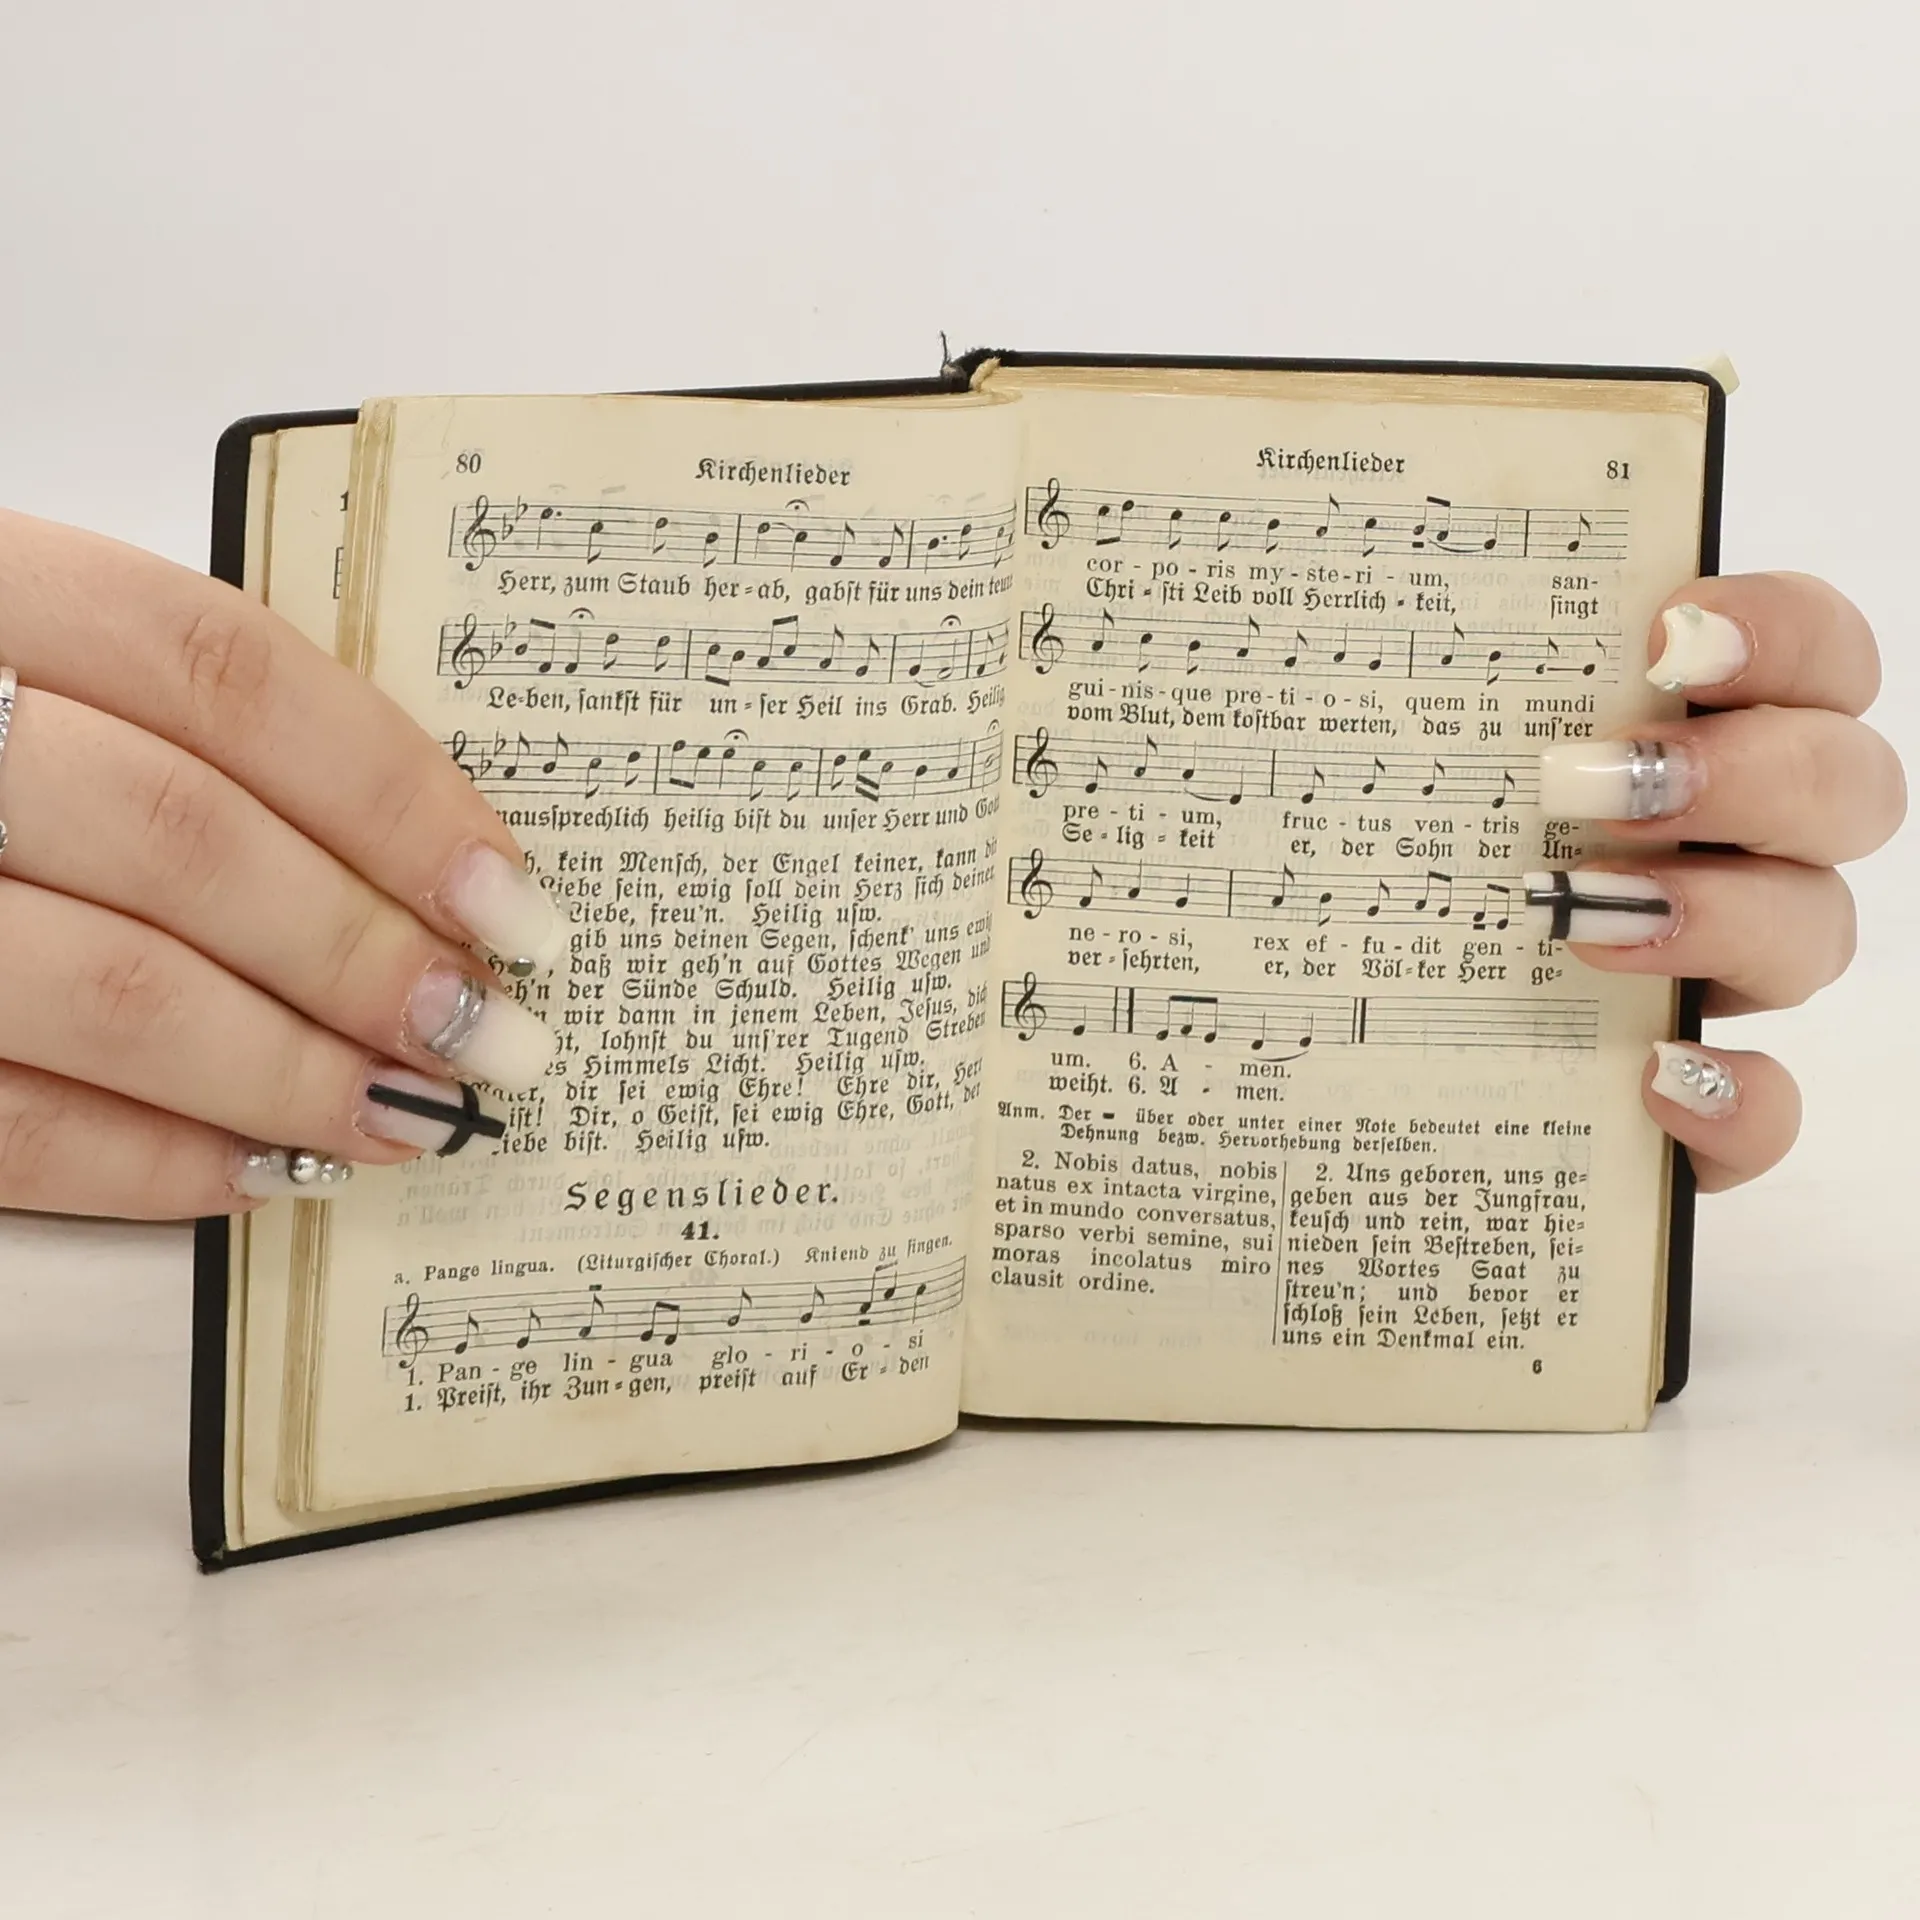 80
Kirchenlieder
Herr, zum Staub her=ab, gabſt für uns dein
Le=ben, ſankſt für un=ſer Heil ins Grab. Heilig
ausſprechlich heilig biſt du unſer Herr und
kein Menſch, der Engel keiner, kann
Liebe ſein, ewig ſoll dein Herz ſich deiner
Liebe, freu'n. Heilig uſw.
gib uns deinen Segen, ſchenk' uns
daß wir geh'n auf Gottes Wegen und
der Sünde Schuld. Heilig uſw.
wir dann in jenem Leben, Jeſus,
lohnſt du unſ'rer Tugend Streben
Himmels Licht. Heilig uſw.
dir ſei ewig Ehre! Ehre dir, Herr
Dir, o Geiſt, ſei ewig Ehre, Gott, der
biſt. Heilig uſw.
Segenslieder.
41.
a. Pange lingua. (Liturgiſcher Choral.) Kniend zu ſingen.
1. Pan - ge lin - gua glo - ri - o - si
1. Preiſt, ihr Zun=gen, preiſt auf Er = den
Kirchenlieder
81
cor - po - ris my - ste - ri - um, san-
Chri = ſti Leib voll Herrlich = keit, ſingt
gui - nis - que pre - ti - o - si, quem in mundi
vom Blut, dem koſtbar werten, das zu unſ'rer
pre - ti - um, fruc - tus ven - tris ge-
Se = lig = keit er, der Sohn der Un=
ne - ro - si, rex ef - fu - dit gen - ti-
ver = ſehrten, er, der Völ=ker Herr ge=
um. 6. A - men.
weiht. 6. A = men.
Anm. Der – über oder unter einer Note bedeutet eine kleine
Dehnung bezw. Hervorhebung derſelben.
2. Nobis datus, nobis
natus ex intacta virgine,
et in mundo conversatus,
sparso verbi semine, sui
moras incolatus miro
clausit ordine.
2. Uns geboren, uns ge=
geben aus der Jungfrau,
keuſch und rein, war hie=
nieden ſein Beſtreben, ſei=
nes Wortes Saat zu
ſtreu'n; und bevor er
ſchloß ſein Leben, ſetzt er
uns ein Denkmal ein.
6